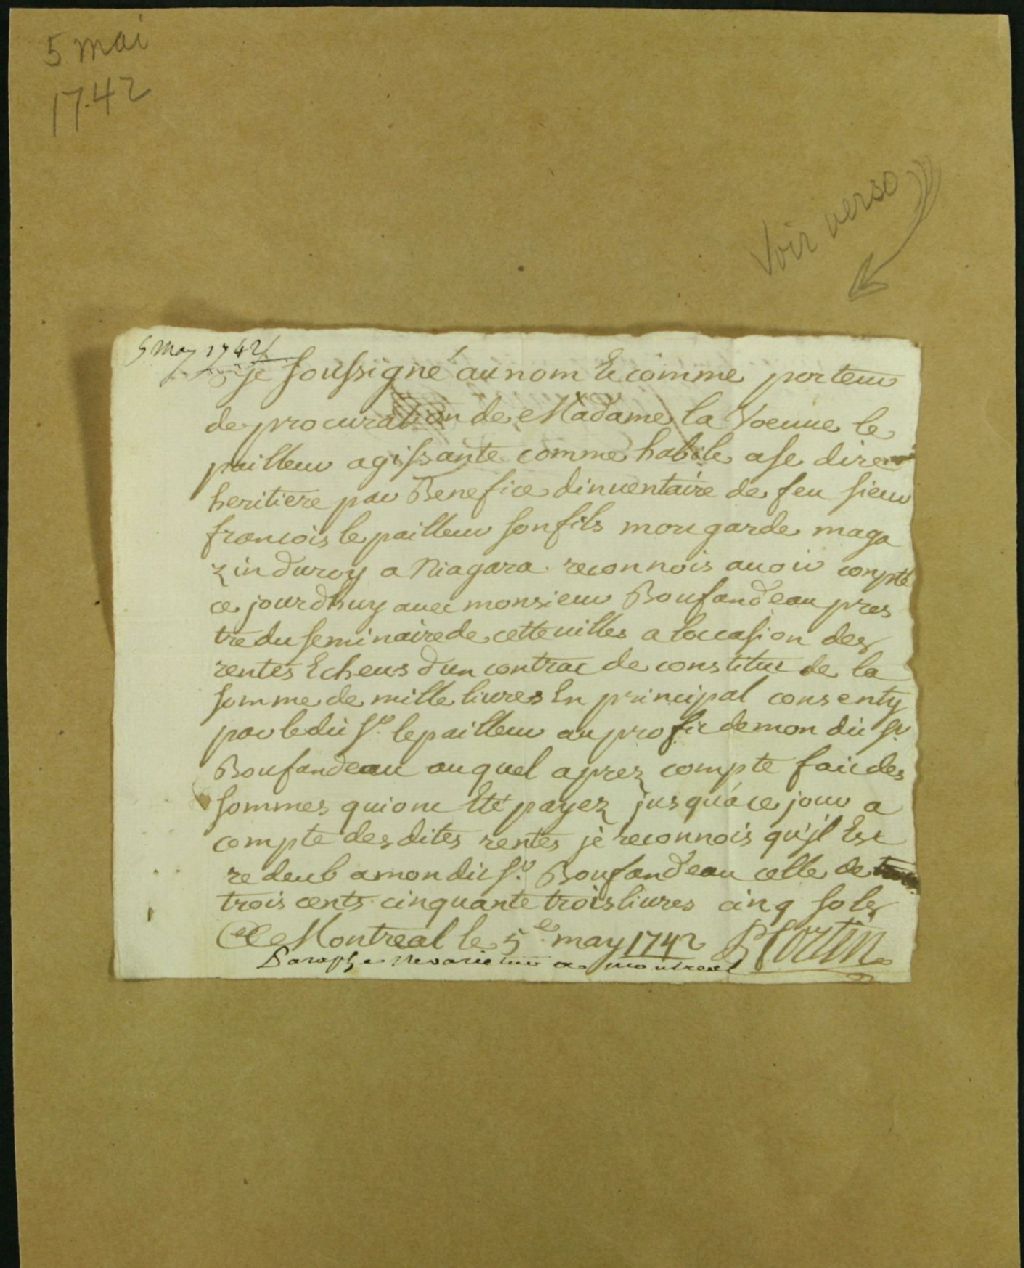 5 mai
1742
Voir verso
5 May 1742
je soussigné au nom & comme porteur
de procuration de Madame la Voeuue le
pailleur agissante comme habile a se dire
heritiere par Benefice dinventaire de feu sieur
francois le pailleur son fils mort garde maga
zin du roy a Niagara reconnois auoir compté
ce jourdhuy auec monsieur Boufandeau pres
tre du seminaire de cette uille a loccasion des
rentes Echeus d'un contrac de constitut de la
somme de mille liures En principal consenty
par le dit Sr. lepailleur au profit de mon dit Sr
Boufandeau auquel aprez compte fait des
sommes qui ont Eté payez jusqu'a ce jour a
compte des dites rentes je reconnois qu'jl Est
redeub a mon dit Sr. Boufandeau celle de
trois cents cinquante trois liures cinq sols
a Montreal le 5e may 1742 P Cortin
Paraphe Ne varietur a montreal